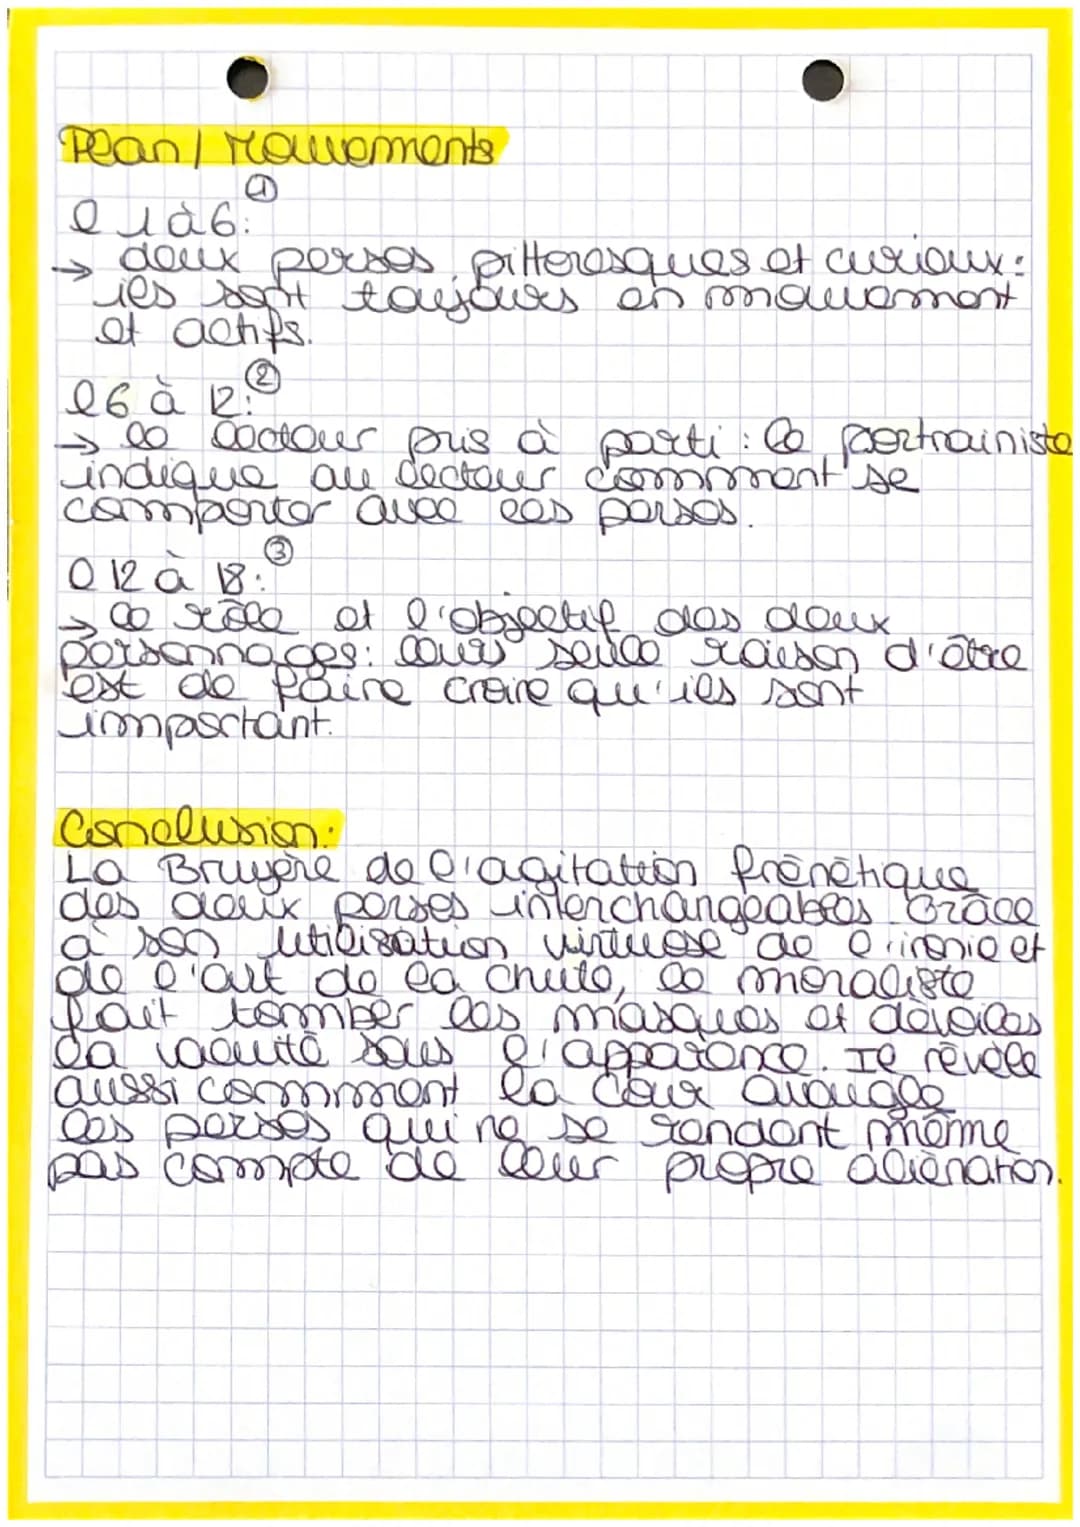 Plan / Mouvements
①
l 1 à 6:
→ deux persos pitteresques et curieux:
ils sont toujours en mouvement
et actifs.
②
l 6 à 12:
→ le lecteur pris à parti : le portrainiste
indique au lecteur commment se
comporter avec les persos.
③
l 12 à 18:
→ le rôle et l'objectif des deux
personnages: leurs seule raison d'être
est de faire croire qu'ils sont
important.
Conclusion:
La Bruyère de l'agitation frénétique
des deux persos interchangeables. Grâce
à son utilisation virtuose de l'ironie et
de l'art de la chute, le moraliste
fait tommber les masques et dévoiles
la vacuité sous l'apparence. Il révèle
aussi commment la Cour aveugle
les persos qui ne se rendent même
pas compte de leur propre aliénation.